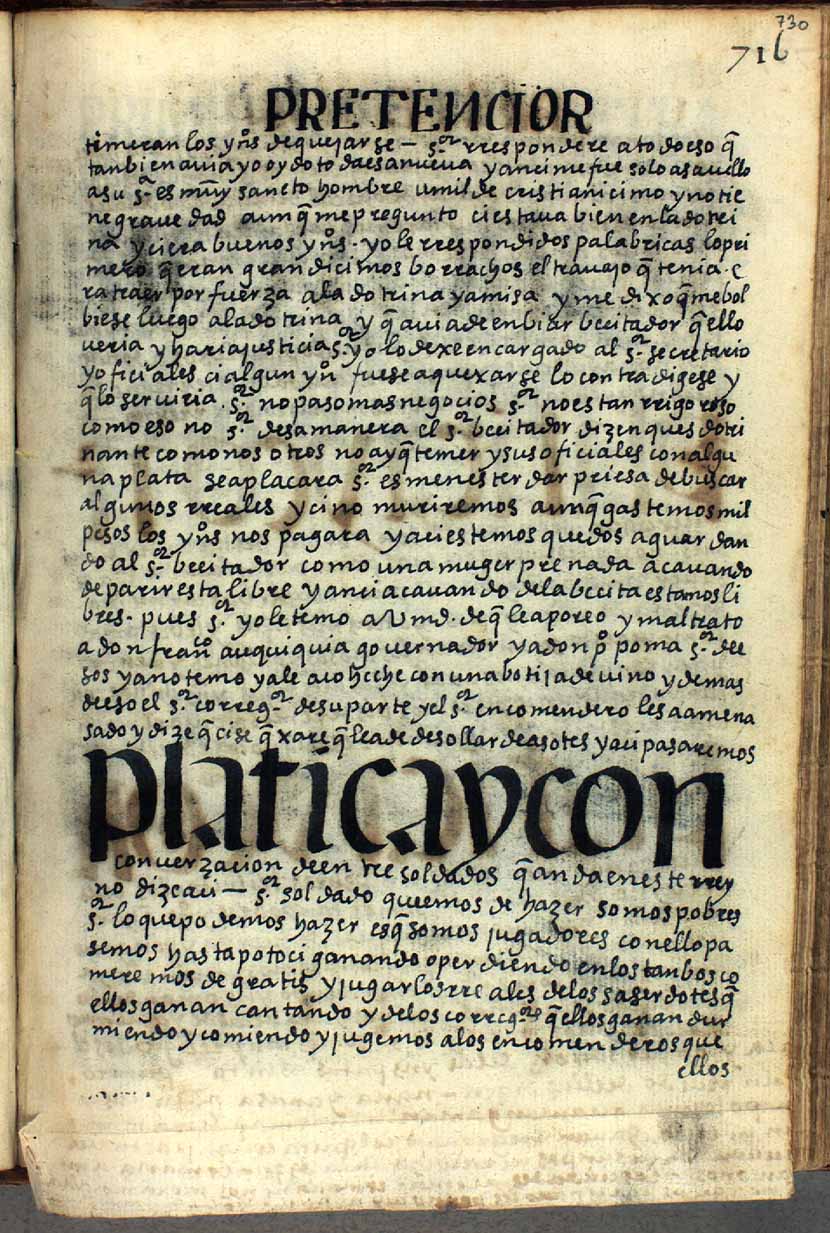 730
716
PRETENCIOR
timeran los yn̄s de quejarse – s.or rresponde re a todo eso q̄
tanbien auia yo oydo toda esa nueua y anci me fue solo a sauello
a su s.a es muy sancto hombre umilde cristianicimo y no tie
ne grauedad aunq̄ me pregunto ci estaua bien en la dotri
na y ci era buenos yn̄s - yo le rrespondi dos palabricas lo pri
mero q̄ eran grandicimos borrachos el trauajo q̄ tenia - e
ra traer por fuerza a la dotrina y a misa y me dixo q̄ me bol
biese luego a la dotrina y q̄ auia de enbiar becitador q̄ ello
ueria y haria justicia s.or yo lo dexe encargado al s.or secretario
y oficiales ci algun yn̄o fuese a quexarse lo contradigese y
q̄ lo seruiria - s.or no paso mas negocios s.or no es tan rrigoroso
como eso no s.or desa manera el s.or becitador dizen ques dotri
nante como nosotros no ay q̄ temer y sus oficiales con algu
na plata se aplacara s.or es menester dar priesa de buscar
algunos rreales y ci no muriremos aunq̄ gastemos mil
pesos los yn̄s nos pagara y aci estemos quedos aguardan
do al s.or becitador como una muger prenada acauando
de parir esta libre y anci acauando de la becita estamos li
bres - pues s.or yo le temo a Vmd. de q̄ le aporeo y maltrato
a don fran.co auquiquia gouernador y a don p.o poma s.or de e
sos ya no temo ya le aco hecho con una botija de uino y demas
de eso el s.or correg.or de su parte y el s.or encomendero les a amena
sado y dize q̄ ci se q̄xare q̄ le a de desollar de asotes y aci pasaremos
platicaycon
conuerzacion de entre soldados q̄ anda en este rrey
no dize aci – s.or soldado queemos de hazer somos pobres
s.or lo que podemos hazer es q̄ somos jugadores con ello pa
semos hasta potoci ganando o perdiendo en los tanbos co
meremos de gratis y jugar los rreales de los saserdotes q̄
ellos ganan cantando y de los correg.es q̄ ellos ganan dur
miendo y comiendo y jugemos a los encomenderos que
ellos